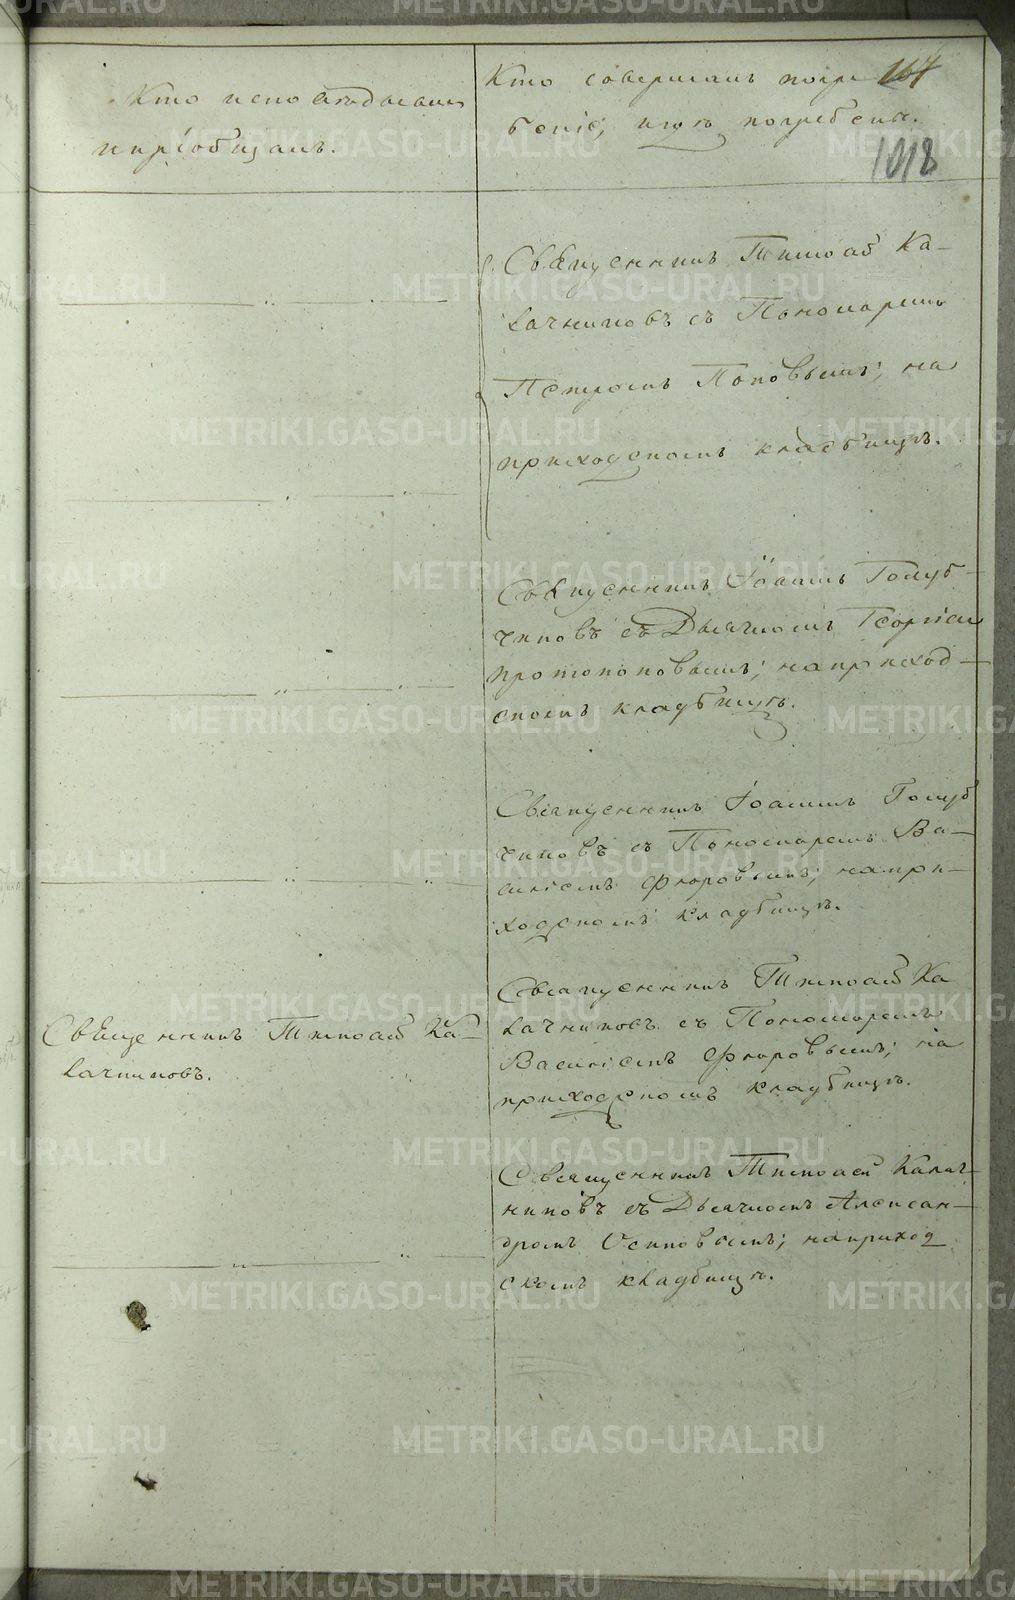 Кто исповѣдывалъ
и пріобщалъ.
Кто совершалъ погре
беніе, и гдѣ погребены.
167
1018
Священникъ Тимоѳей Ка-
лачниковъ съ Пономаремъ
Петромъ Поповымъ; на
приходскомъ кладбищѣ.
Священникъ Іоаннъ Голуб-
чиковъ съ Дьячкомъ Георгіем
Протопоповымъ; на приход-
скомъ кладбищѣ.
Священникъ Іоаннъ Голуб
чиковъ съ Пономаремъ Ва-
силіемъ Флоровымъ; на при-
ходскомъ кладбищѣ.
Священникъ Тимоѳей Ка-
лачниковъ.
Священникъ Тимоѳей Ка
лачниковъ съ Пономаремъ
Василіемъ Флоровымъ; на
приходскомъ кладбищѣ.
Священникъ Тимоѳей Калач-
никовъ съ Дьячкомъ Алексан-
дромъ Осиповымъ; на приход
скомъ кладбищѣ.
METRIKI.GASO-URAL.RU